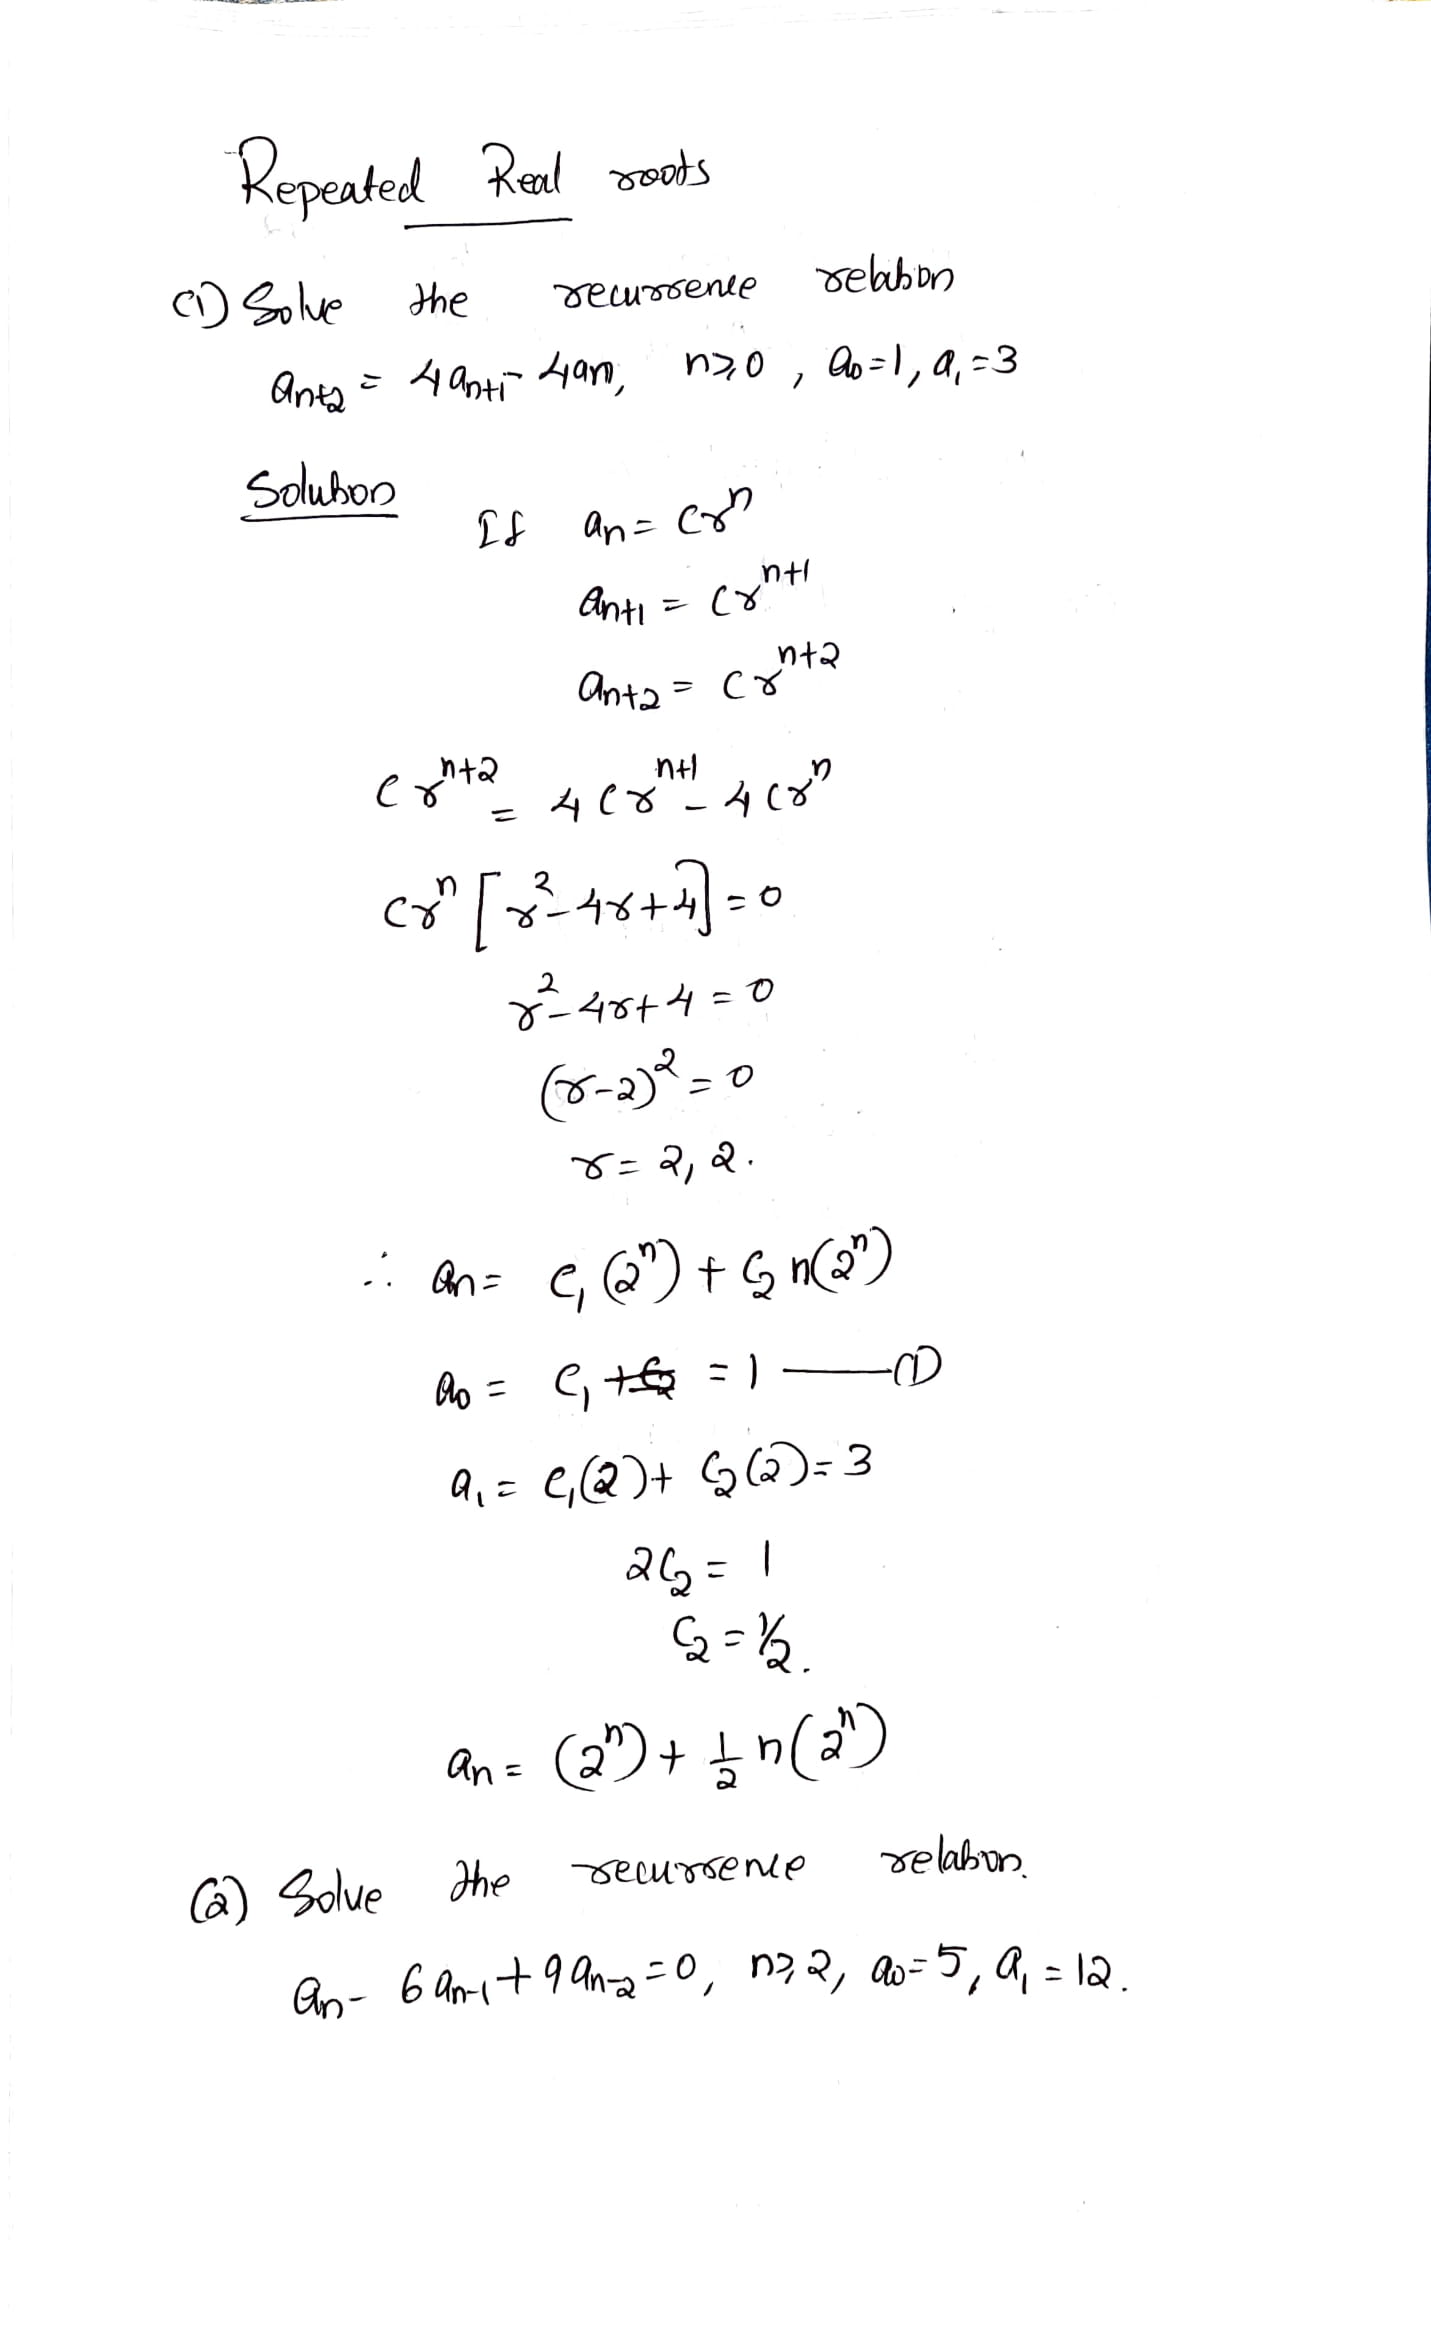 Repeated Real roots
(1) Solve the recurrence relation
an+2 = 4an+1 - 4an, n≥0, a0=1, a1=3
Solution
If an = crⁿ
an+1 = crⁿ⁺¹
an+2 = crⁿ⁺²
crⁿ⁺² = 4crⁿ⁺¹ - 4crⁿ
crⁿ [r² - 4r + 4] = 0
r² - 4r + 4 = 0
(r-2)² = 0
r = 2, 2.
∴ an = c1(2ⁿ) + c2 n(2ⁿ)
a0 = c1 = 1 —— (1)
a1 = c1(2) + c2(2) = 3
2c2 = 1
c2 = 1/2.
an = (2ⁿ) + 1/2 n(2ⁿ)
(2) Solve the recurrence relation.
an - 6an-1 + 9an-2 = 0, n≥2, a0=5, a1=12.